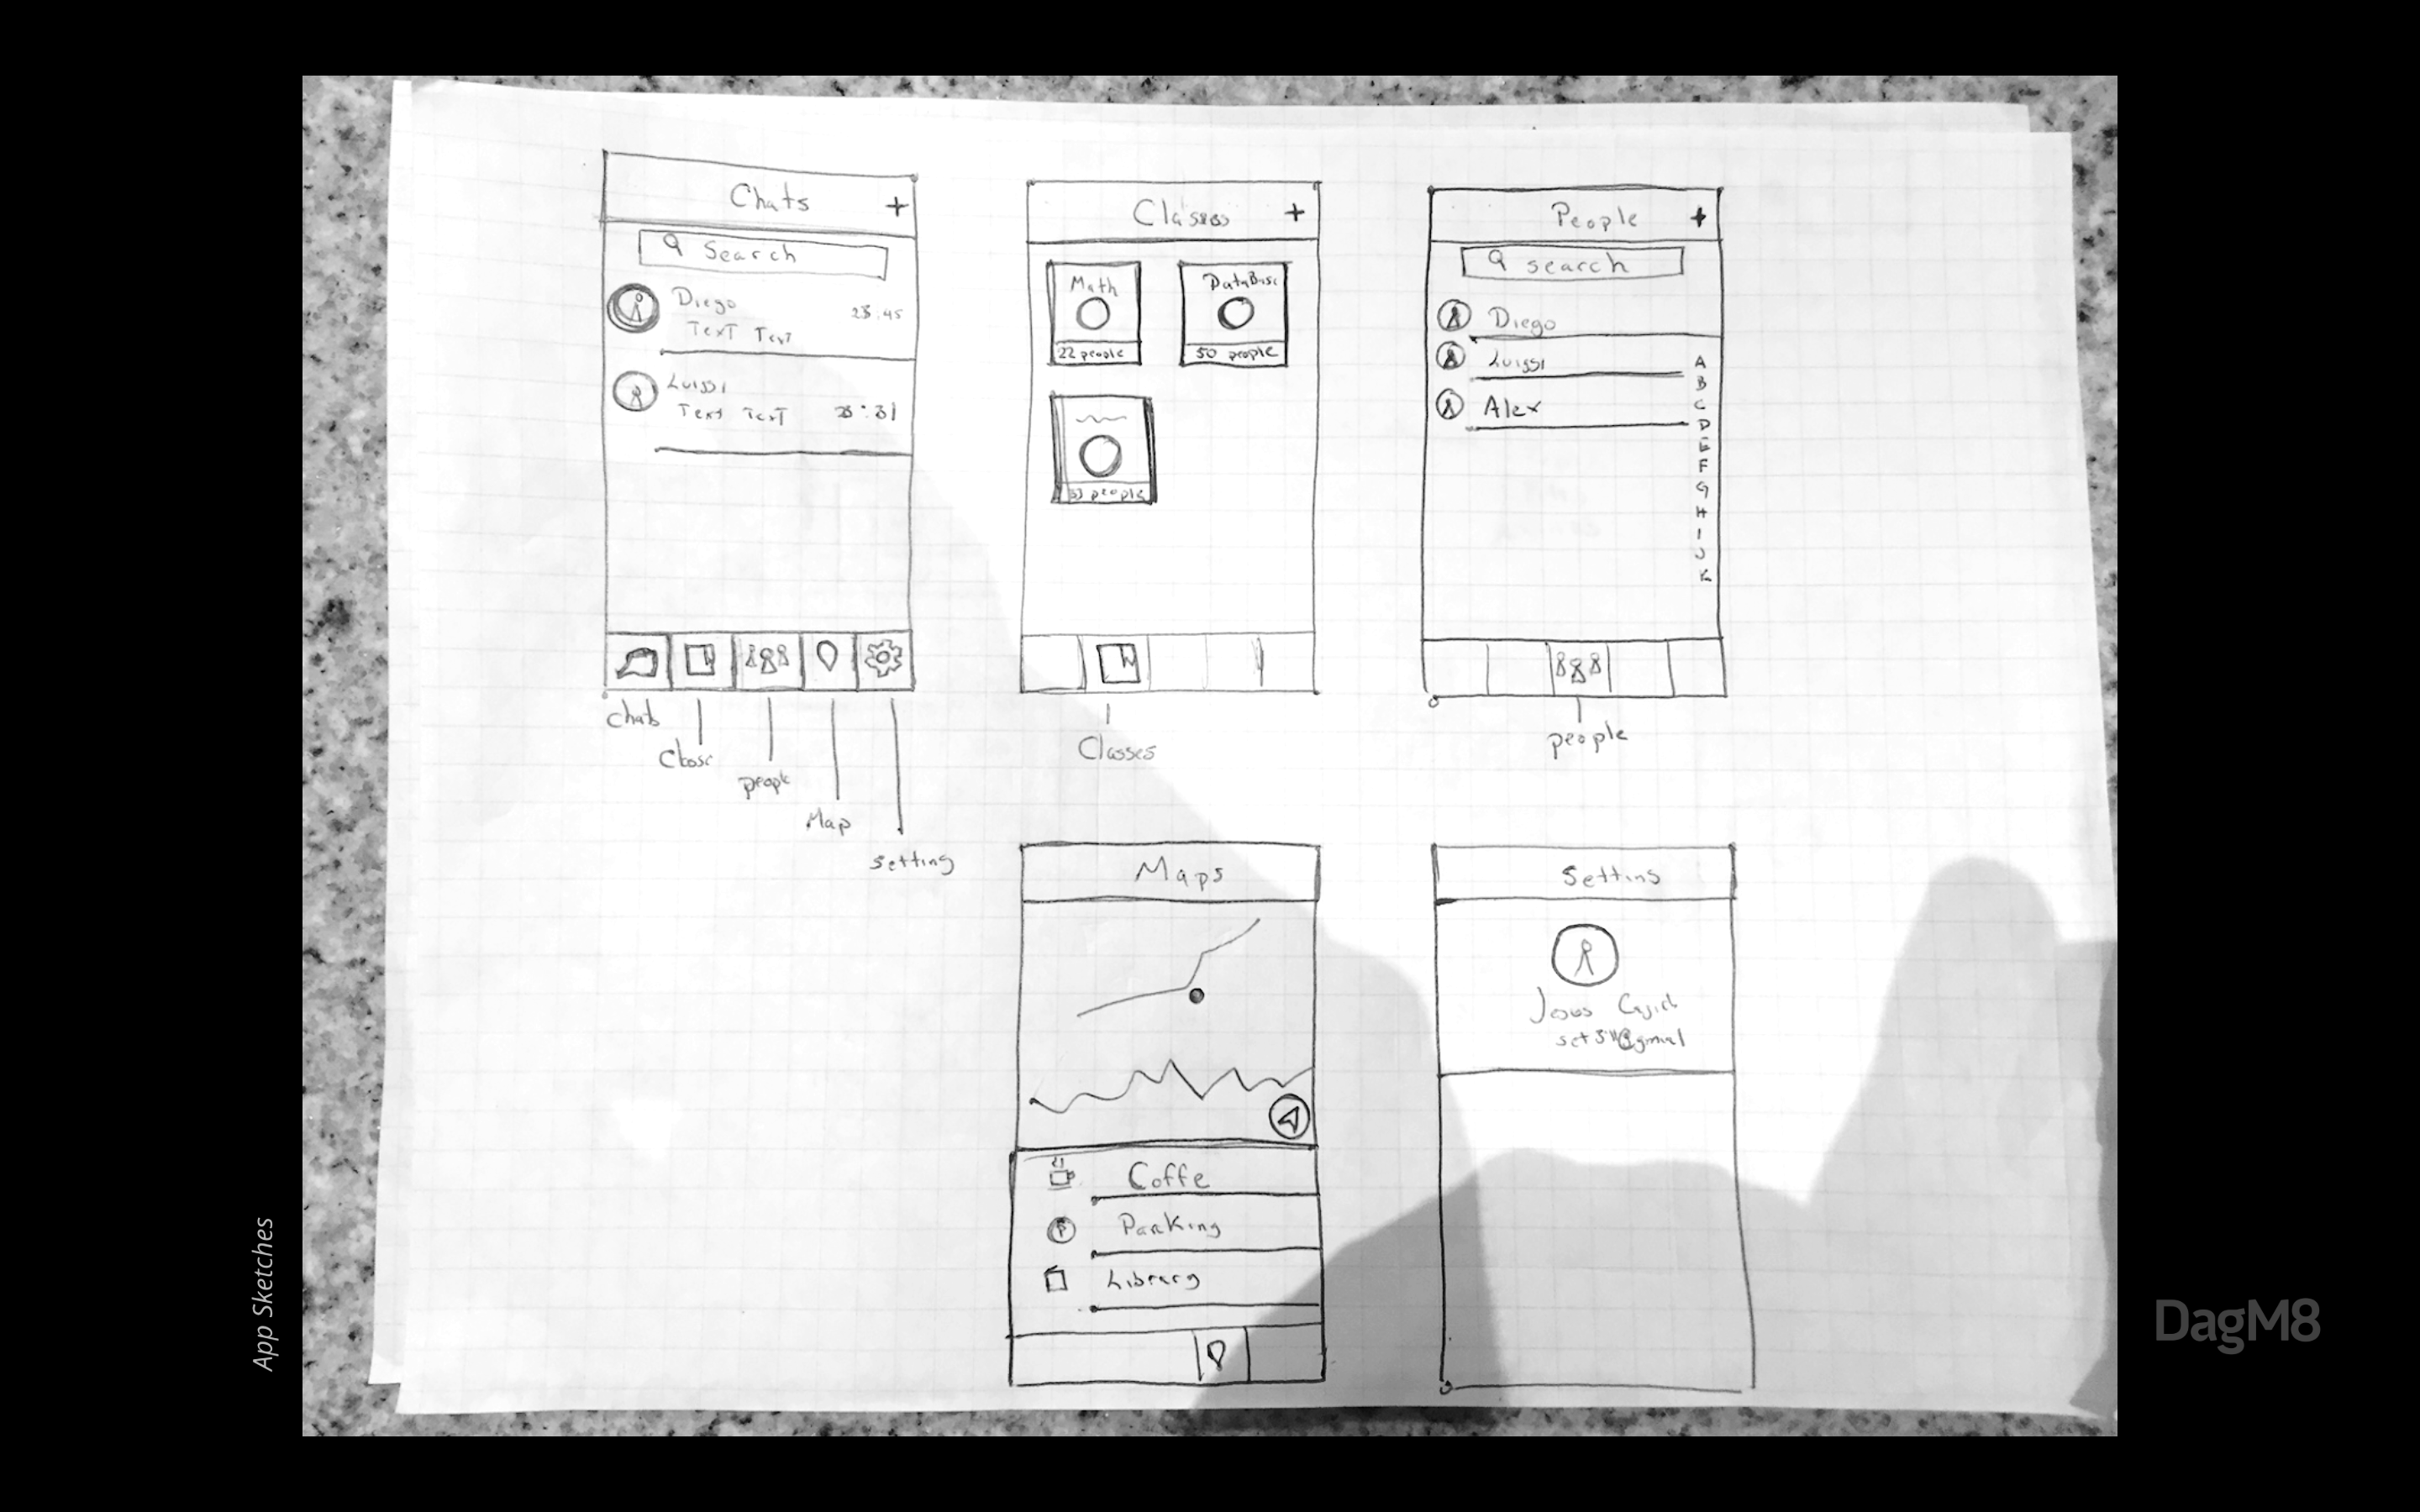 Chats +
Search
Diego
Text Text
23:45
Luissi
Text Text
23:31
Chats
Classe
people
Map
setting
Classes +
Math
22 people
DataBase
50 people
33 people
Classes
People +
search
Diego
Luissi
Alex
A
B
C
D
E
F
G
H
I
J
K
people
Maps
Coffe
P
Parking
Library
Setting
Jesus
App Sketches
DagM8